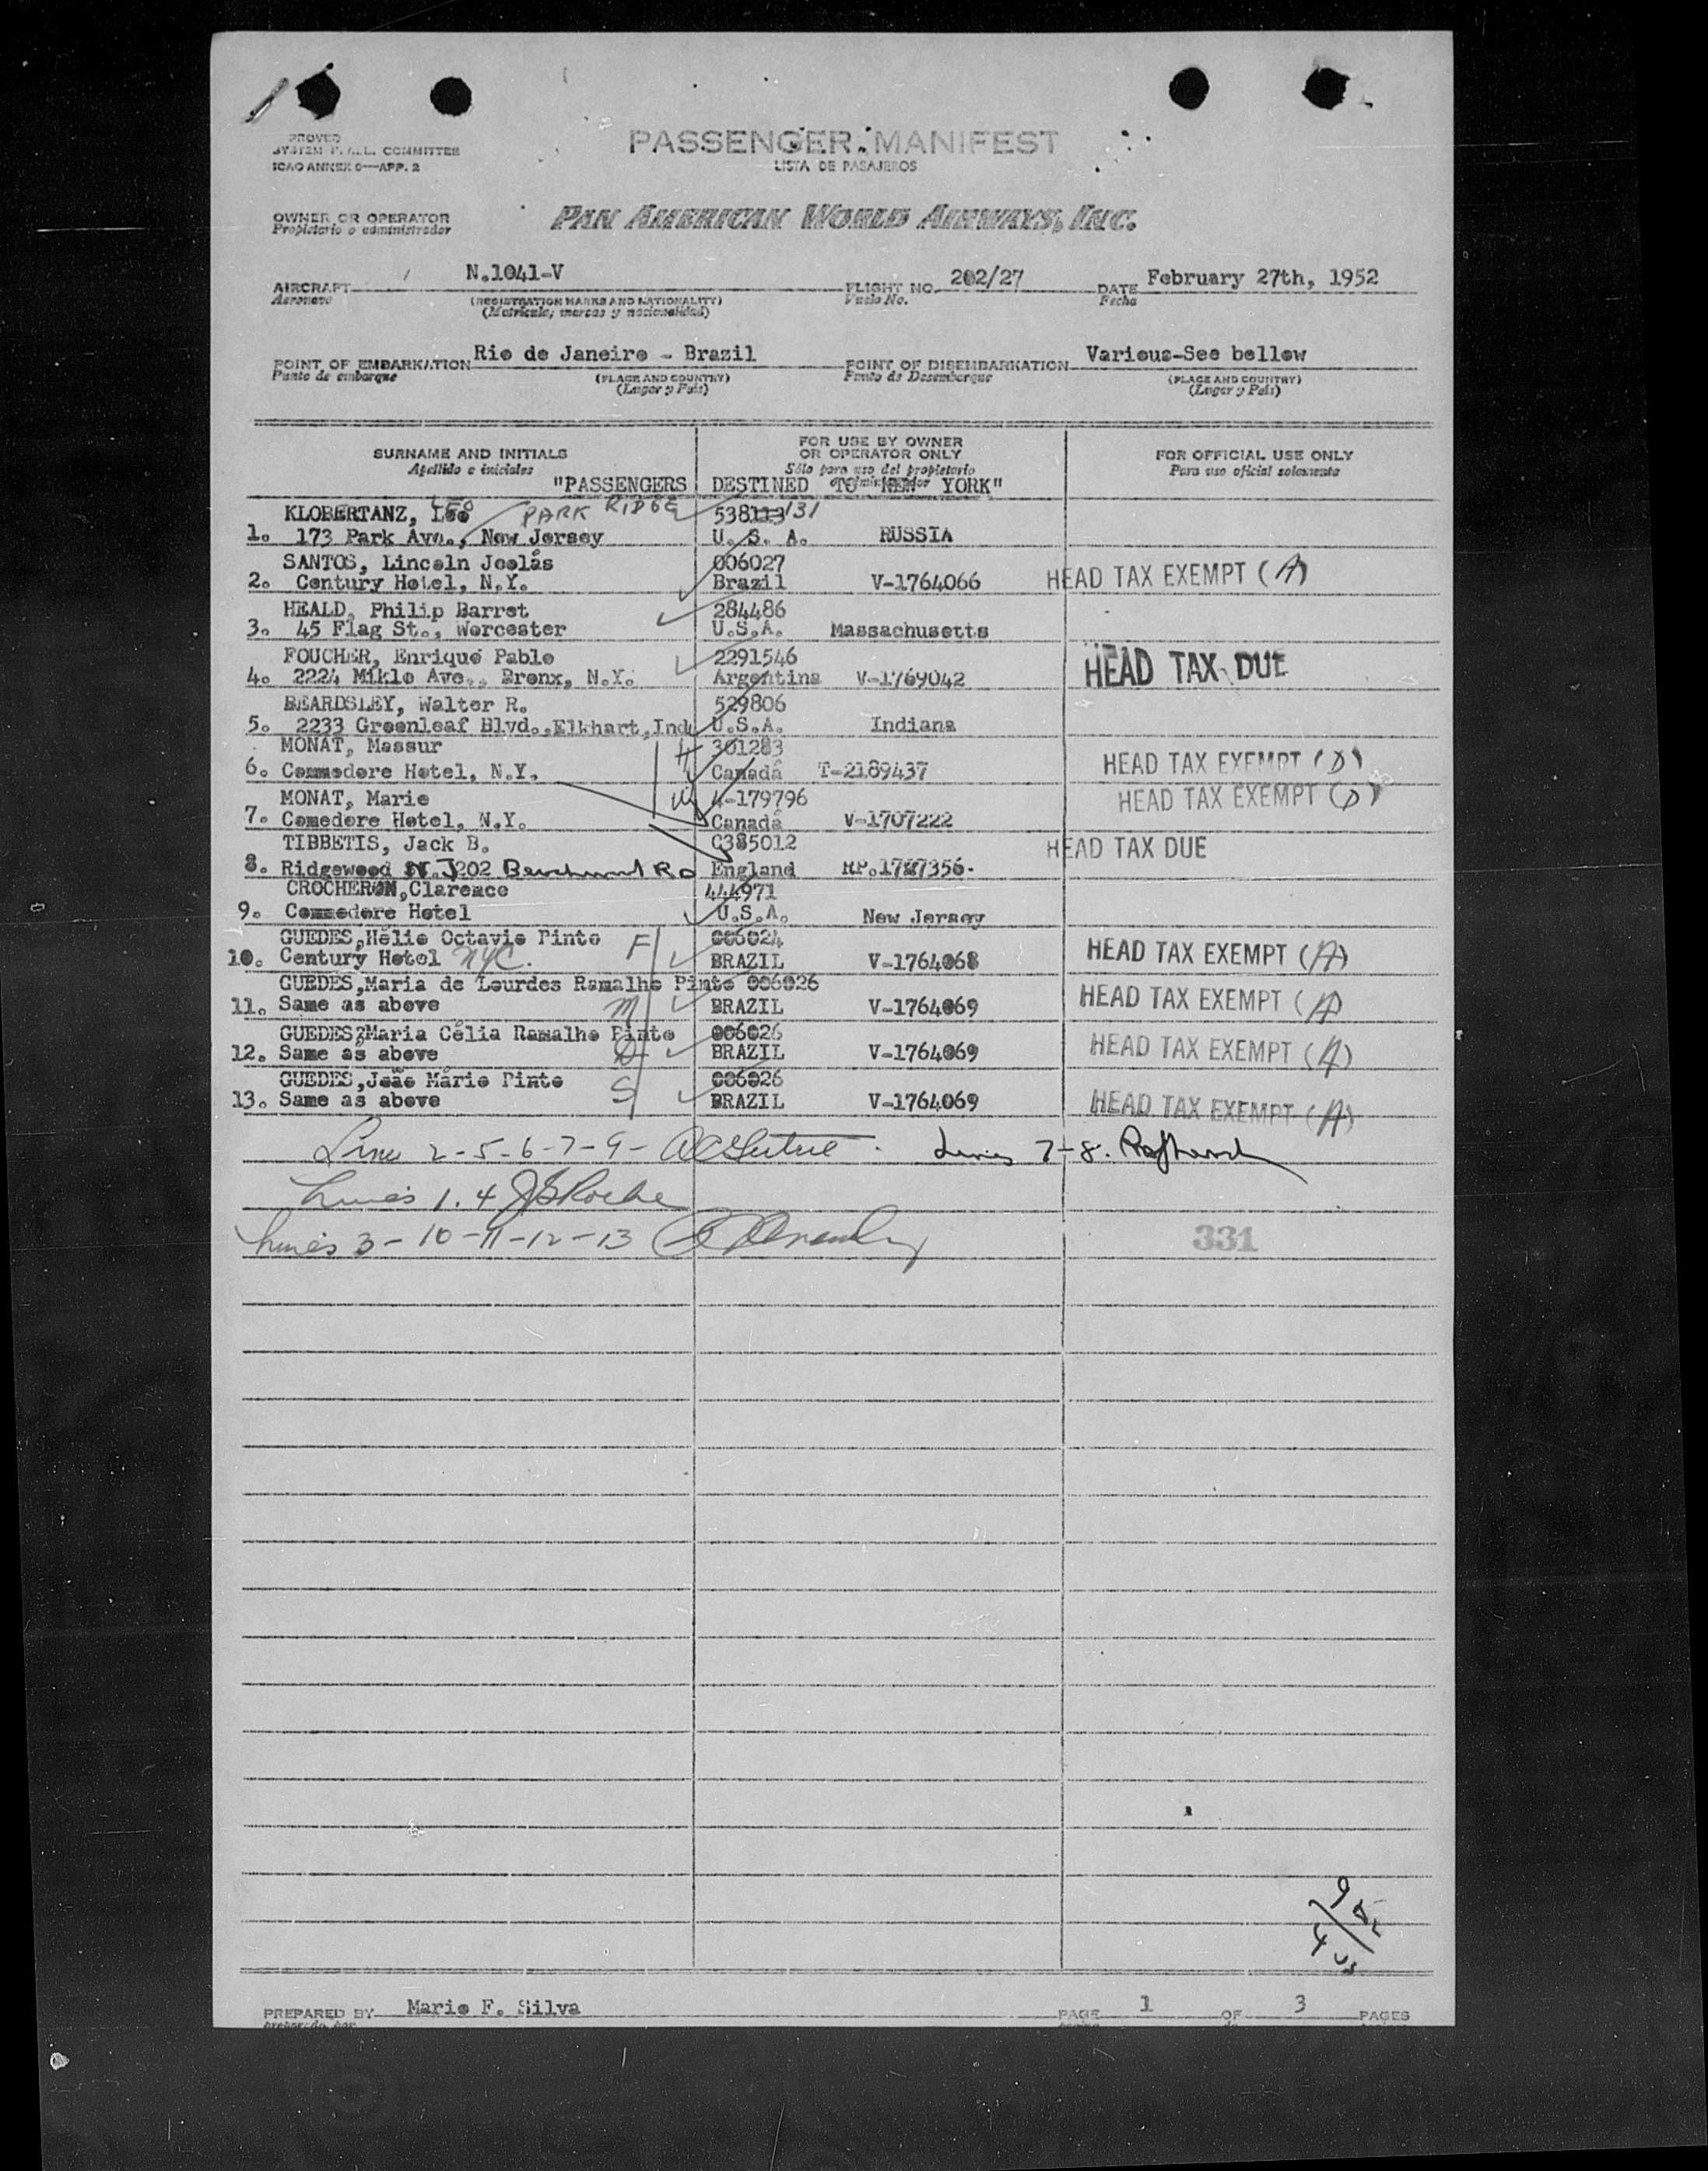 PROVED
SYSTEM F.A.L. COMMITTEE
ICAO ANNEX 9—APP. 2
PASSENGER MANIFEST
LISTA DE PASAJEROS
OWNER OR OPERATOR
Propietario o administrador
PAN AMERICAN WORLD AIRWAYS, INC.
AIRCRAFT N.1041-V FLIGHT NO. 202/27 DATE February 27th, 1952
Aeronave (REGISTRATION MARKS AND NATIONALITY) Vuelo No. Fecha
(Matrícula, marcas y nacionalidad)
POINT OF EMBARKATION Rio de Janeiro - Brazil POINT OF DISEMBARKATION Various-See bellow
Punto de embarque (PLACE AND COUNTRY) Punto de Desembarque (PLACE AND COUNTRY)
(Lugar y País) (Lugar y País)
SURNAME AND INITIALS FOR USE BY OWNER OR OPERATOR ONLY FOR OFFICIAL USE ONLY
Apellido e iniciales Sólo para uso del propietario o administrador Para uso oficial solamente
"PASSENGERS DESTINED TO NEW YORK"
KLOBERTANZ, Leo LEO PARK RIDGE 538113 131
1. 173 Park Ave., New Jersey U. S. A. RUSSIA
SANTOS, Lincoln Jeolás 006027
2. Century Hotel, N.Y. Brazil V-1764066 HEAD TAX EXEMPT (A)
HEALD, Philip Barret 284486
3. 45 Flag St., Worcester U.S.A. Massachusetts
FOUCHER, Enrique Pablo 2291546
4. 2224 Miklo Ave., Bronx, N.Y. Argentina V-1769042 HEAD TAX DUE
BEARDSLEY, Walter R. 529806
5. 2233 Greenleaf Blvd.,Elkhart,Ind. U.S.A. Indiana
MONAT, Massur H 301283
6. Commodore Hotel, N.Y. Canadá T-2189437 HEAD TAX EXEMPT (D)
MONAT, Marie W 4-179796 HEAD TAX EXEMPT (D)
7. Comedore Hotel, N.Y. Canadá V-1707222
TIBBETIS, Jack B. C385012 HEAD TAX DUE
8. Ridgewood N.J 202 Beechwood Rd England RP.1787356-
CROCHERON,Clarence 444971
9. Commodore Hotel U.S.A. New Jersey
GUEDES,Hélio Octavio Pinto F 006024
10. Century Hotel NYC. BRAZIL V-1764068 HEAD TAX EXEMPT (A)
GUEDES,Maria de Lourdes Ramalho Pinto 006026
11. Same as above M BRAZIL V-1764069 HEAD TAX EXEMPT (A)
GUEDES,Maria Célia Ramalho Pinto 006026
12. Same as above D BRAZIL V-1764069 HEAD TAX EXEMPT (A)
GUEDES,João Mário Pinto 006026
13. Same as above S BRAZIL V-1764069 HEAD TAX EXEMPT (A)
Lines 2-5-6-7-9- Lines 7-8.
Lines 1.4 JGRoche
Lines 3-10-11-12-13
331
PREPARED BY Mario F. Silva PAGE 1 OF 3 PAGES